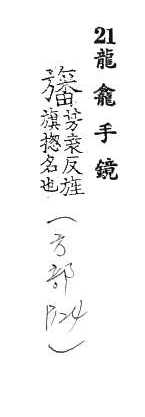 21 龍龕手鏡
旛芳袁反旌
旗揔名也
(方部 P124)